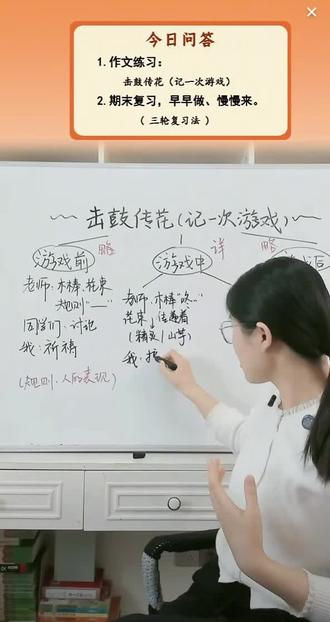 今日问答
1.作文练习：
击鼓传花（记一次游戏）
2.期末复习，早早做、慢慢来。
（三轮复习法）
～～击鼓传花(记一次游戏)～～
略
详
略
游戏前
游戏中
老师：木棒、花束
规则“——”
同学们：讨论
我：祈祷
(规则、人的表现)
老师：木棒“咚…”
花束↓传递着
我：